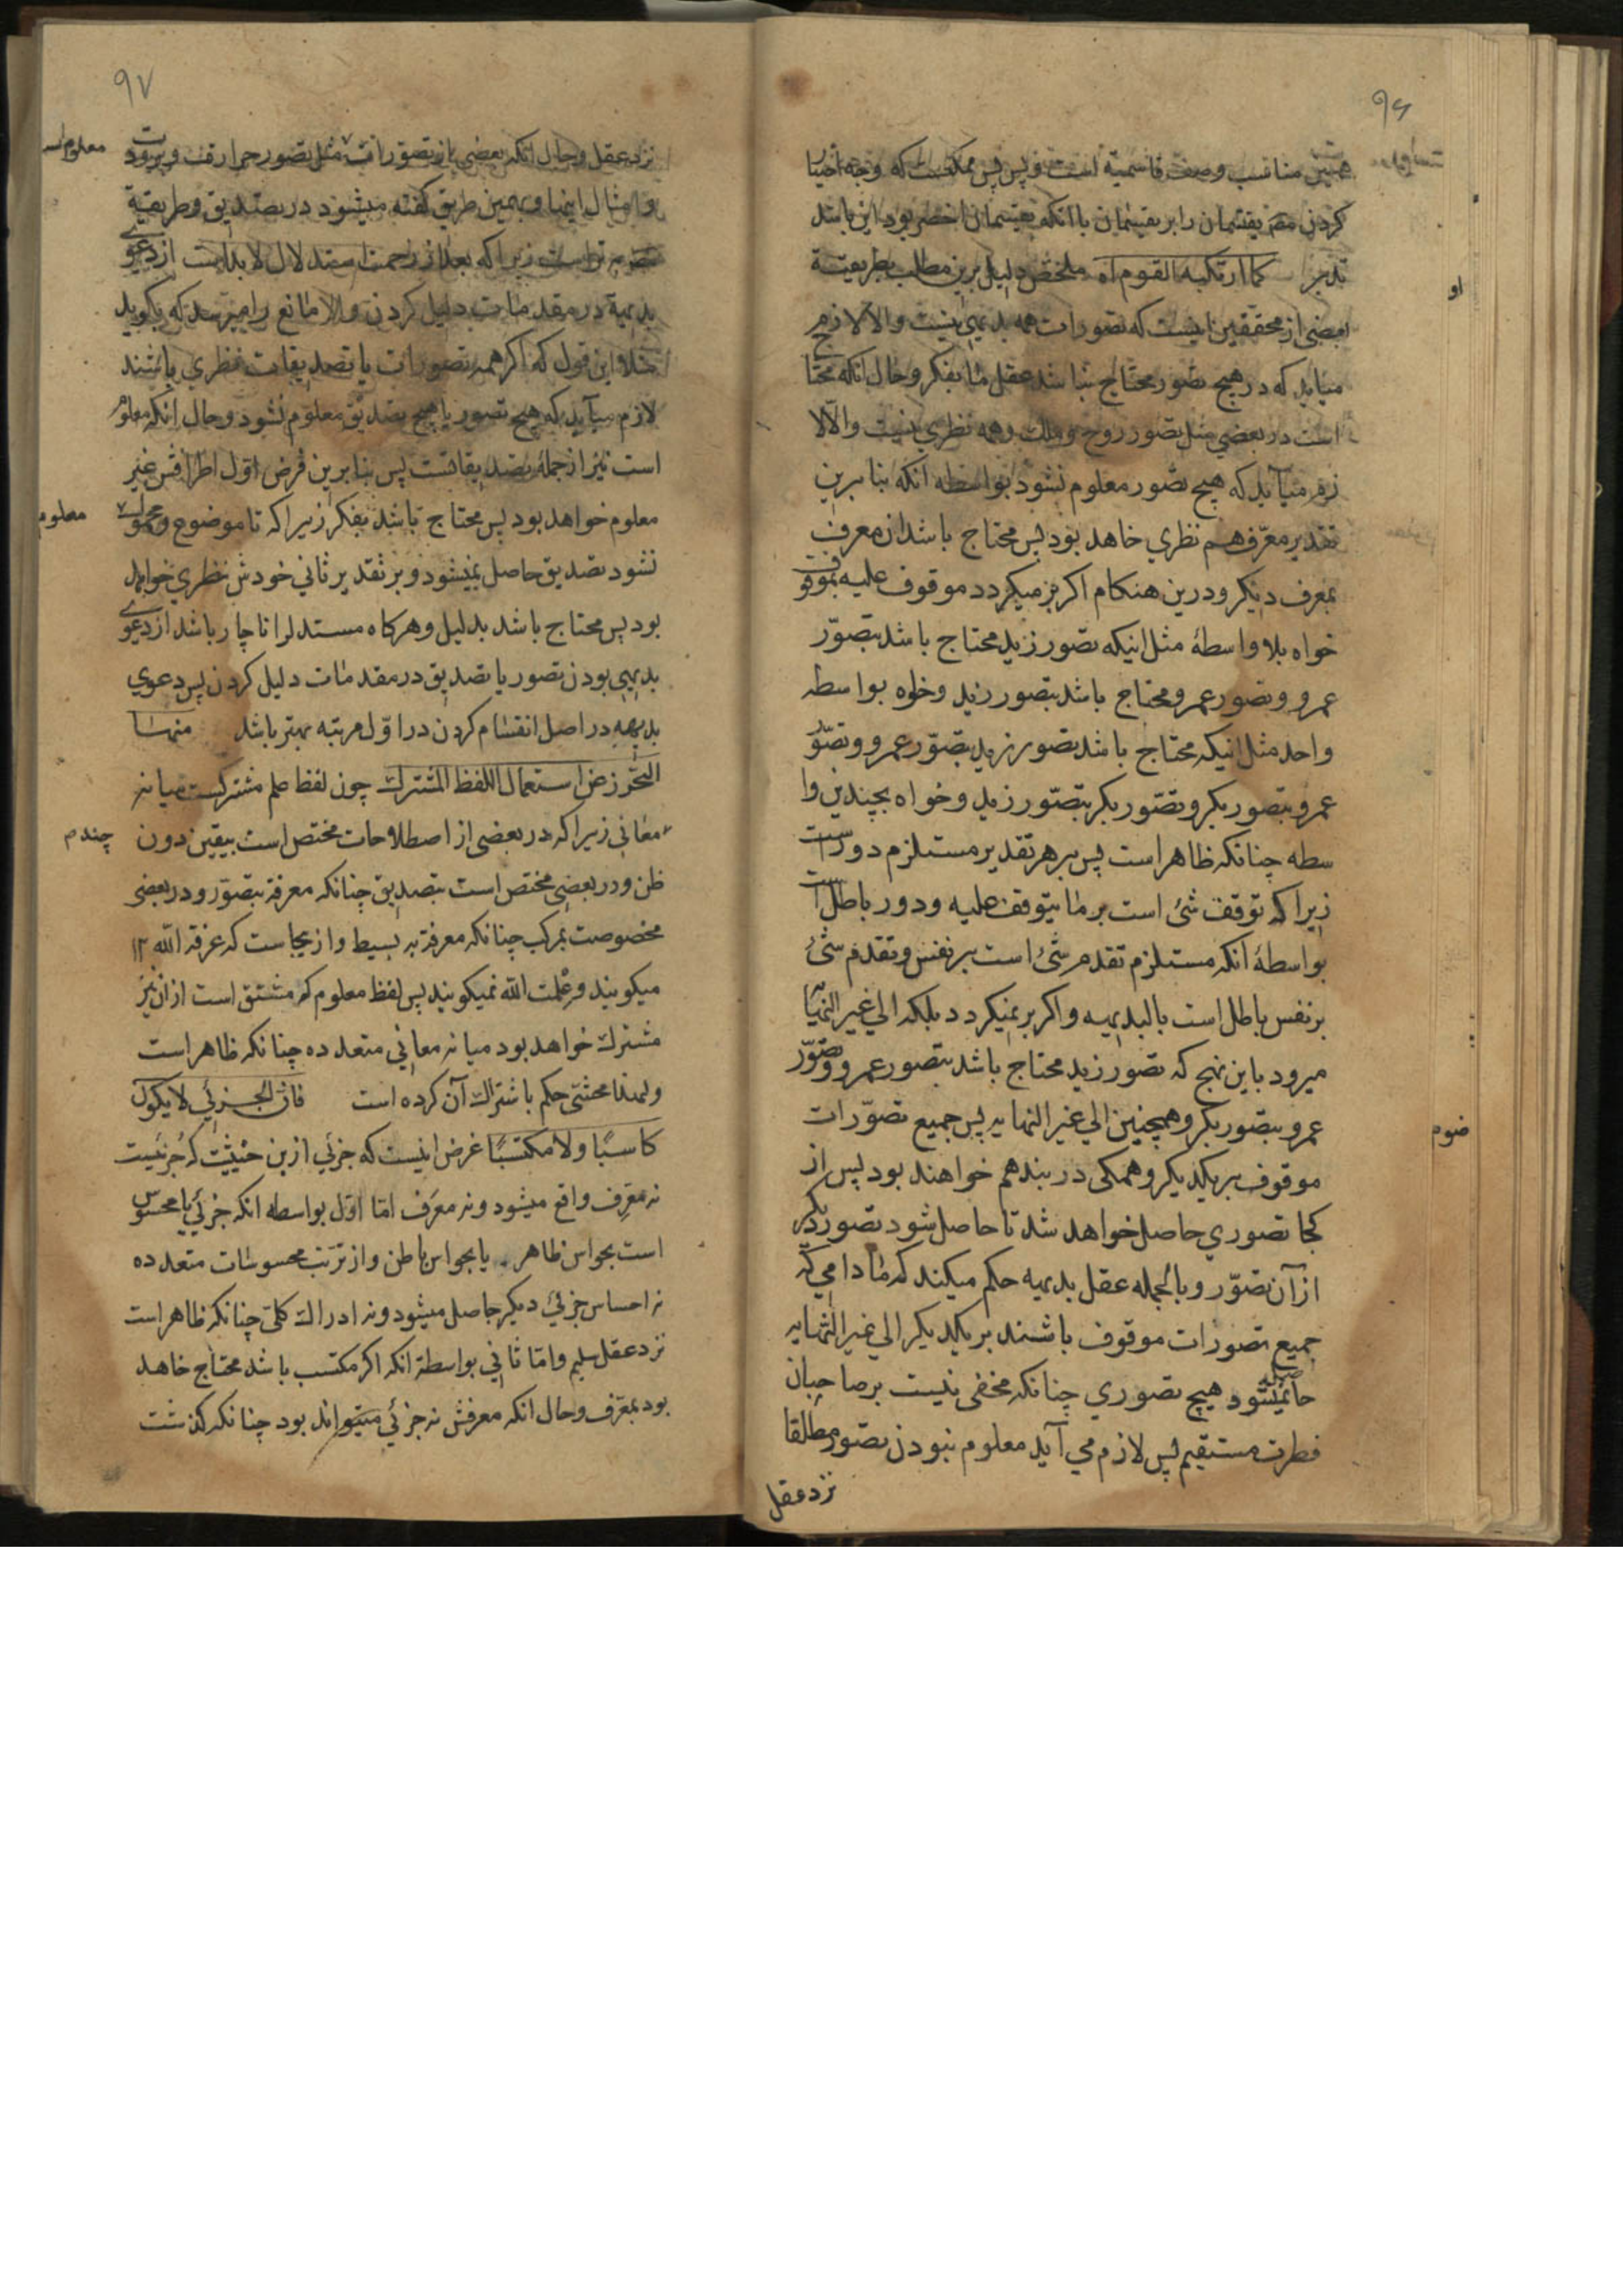 ۹۶
همین مناسب وصف قاسمیة است و پس پس ممکنست که وجه اختیار
کردن یقتسمان را بر یقسمان با انکه یقسمان اخصر بود این باشد
تدبر کما ارتکبه القوم اه ملخص دلیل برین مطلب بطریقة
بعضی از محققین اینست که تصورات همه بدیهی نیست والا لازم
میاید که در هیچ تصور محتاج نباشد عقل ما بفکر و حال انکه محتا
است در بعضی مثل تصور روح و ملک و همه نظری نیست والا لا
زم میآید که هیچ تصور معلوم نشود بواسطه انکه بنا برین
تقدیر معرّف هم نظری خاهد بود پس محتاج باشد ان معرف
بمعرف دیگر و درین هنکام اکر بر میکردد موقوف علیه بموقوف
خواه بلا واسطهٔ مثل اینکه تصور زید محتاج باشد بتصوّر
عمرو و تصور عمرو محتاج باشد بتصور زید و خواه بواسطه
واحد مثل اینکه محتاج باشد تصور زید بتصوّر عمرو و تصوّ
عمرو بتصور بکر و تصوّر بکر بتصوّر زید و خواه بچندین وا
سطه چنانکه ظاهر است پس بر هر تقدیر مستلزم دور است
زیرا که توقف شئ است بر ما یتوقف علیه و دور باطل است
بواسطهٔ انکه مستلزم تقدم شئ است بر نفس و تقدم شئ
بر نفس باطل است بالبدیهیه و اکر بر نمیکردد بلکه الی غیر النهایه
میرود باین نهج که تصور زید محتاج باشد بتصور عمرو و تصوّر
عمرو بتصور بکر و همچنین الی غیر النهایه پس جمیع تصوّرات
موقوف بر یکدیکر و همکی در بند هم خواهند بود پس از
کجا تصوری حاصل خواهد شد تا حاصل شود تصور دیکر
از آن تصوّر و بالجمله عقل بدیهیه حکم میکند که ما دامی که
جمیع تصورات موقوف باشند بر یکدیکر الی غیر النهایه
حاصل نمیشود هیچ تصوری چنانکه مخفی نیست بر صاحبان
فطرت مستقیم پس لازم می آید معلوم نبودن تصور مطلقا
نزد عقل
او
۹۷
نزد عقل و حال انکه بعضی از تصورات مثل تصور حرارت و برودت
معلوم است
و امثال اینها و بهمین طریق کفته میشود در تصدیق و طریقیة
است زیرا که بعد از زحمت استدلال لابد است از دعوی
بدیهیة در مقدمات دلیل کردن والا مانع را میرسد که بکوید
مثلا این قول که اکر همه تصورات یا تصدیقات نظری باشند
لازم میآید که هیچ تصور یا هیچ تصدیق معلوم نشود و حال انکه معلوم
است نیز از جمله تصدیقاتست پس بنابرین فرض اوّل اطرافش غیر
معلوم خواهد بود پس محتاج باشد بفکر زیرا که تا موضوع و محمول
معلوم
نشود تصدیق حاصل نمیشود و بر تقدیر ثانی خودش نظری خواهد
بود پس محتاج باشد بدلیل و هرکاه مستدل را ناچار باشد از دعوی
بدیهی بودن تصور یا تصدیق در مقدمات دلیل کردن پس دعوی
بدیهه در اصل انقسام کردن در اوّل مرتبه بهتر باشد منها
التحرّز عن استعمال اللفظ المشترك چون لفظ علم مشترکست میانه
معانی زیرا که در بعضی از اصطلاحات مختص است بیقین دون
چندم
ظن و در بعضی مختص است بتصدیق چنانکه معرفة بتصوّر و در بعضی
مخصوصت بمرکب چنانکه معرفة به بسیط و از ینجاست که عرفة الله
میکویند و علمت الله نمیکویند پس لفظ معلوم که مشتق است از ان نیز
مشترك خواهد بود میانه معانی متعدده چنانکه ظاهر است
ولهذا محشّی حکم باشتراك آن کرده است فان الجزئی لا یکون
کاسبًا ولا مکتسبًا غرض اینست که جزئی از ین حیثیّت که جزئیست
نه معرِف واقع میشود و نه معرَف امّا اوّل بواسطه انکه جزئی یا محسوس
است بحواس ظاهر یا بحواس باطن و از ترتیب محسوسات متعدده
نه احساس جزئی دیکر حاصل میشود و نه ادراك کلی چنانکه ظاهر است
نزد عقل سلیم و امّا ثانی بواسطة انکه اکر مکتسب باشد محتاج خاهد
بود بمعرّف و حال انکه معرفش نه جزئی میتواند بود چنانکه کذشت